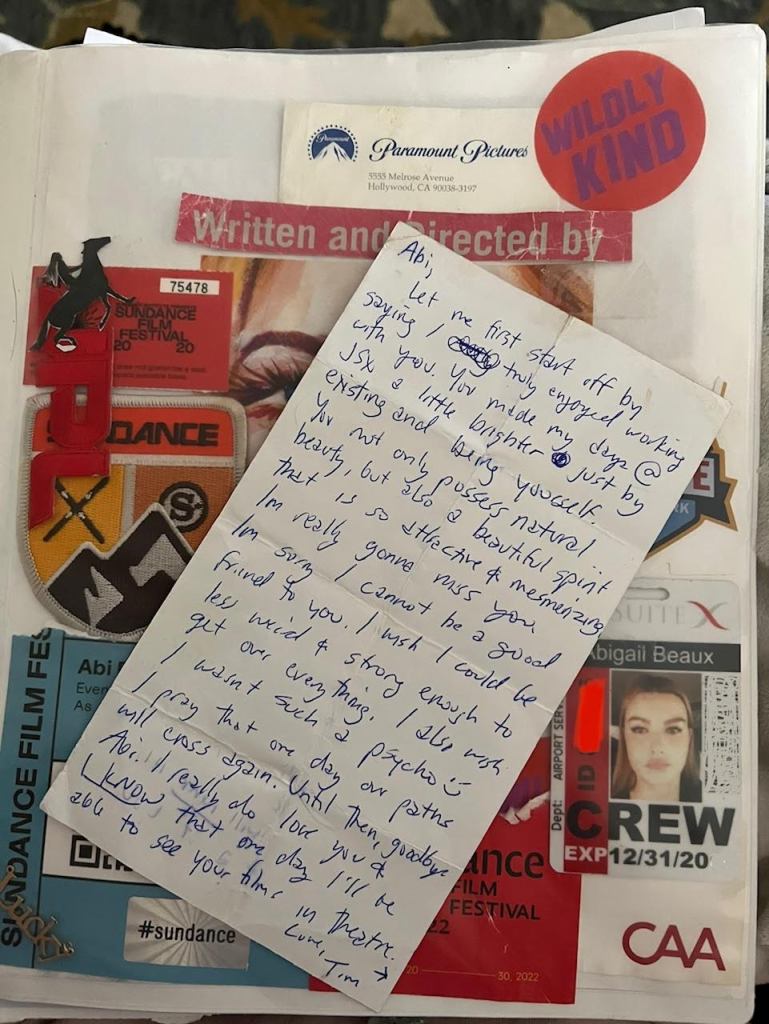 WILDLY
KIND
Paramount
Paramount Pictures
5555 Melrose Avenue
Hollywood, CA 90038-3197
Written and Directed by
75478
SUNDANCE
FILM
FESTIVAL
20 20
IPL
DANCE
S
Abi,
Let me first start off by
saying I truly enjoyed working
with you. You made my days @
JSX a little brighter just by
existing and being yourself.
You not only possess natural
beauty, but also a beautiful spirit
that is so attractive & mesmerizing
I'm really gonna miss you.
I'm sorry I cannot be a good
frined to you. I wish I could be
less weird & strong enough to
get over everything. I also wish
I wasn't such a psycho
I pray that one day our paths
will cross again. Until then, goodbye
Abi. I really do love you &
I KNOW that one day I'll be
able to see your films in theatre.
Love,
Tim
SUITE X
Abigail Beaux
Dept: AIRPORT SERV
ID
CREW
EXP 12/31/20
SUNDANCE FILM FES
Abi
Even
As
#sundance
Lucky
ance
FILM
FESTIVAL
22
20 30, 2022
CAA